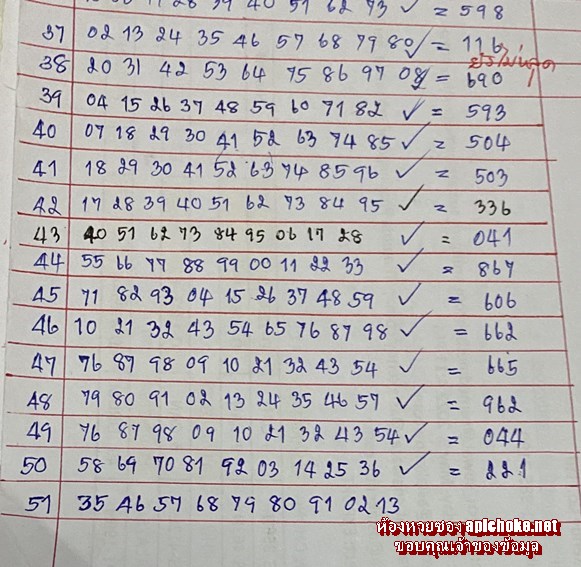 39 40 51 62 73 ✓ = 598
37 02 13 24 35 46 57 68 79 80 ✓ = 116
ยังไม่หลุด
38 20 31 42 53 64 75 86 97 08 ✓ = 690
39 04 15 26 37 48 59 60 71 82 ✓ = 593
40 07 18 29 30 41 52 63 74 85 ✓ = 504
41 18 29 30 41 52 63 74 85 96 ✓ = 503
42 17 28 39 40 51 62 73 84 95 ✓ = 336
43 40 51 62 73 84 95 06 17 28 ✓ = 041
44 55 66 77 88 99 00 11 22 33 ✓ = 867
45 71 82 93 04 15 26 37 48 59 ✓ = 606
46 10 21 32 43 54 65 76 87 98 ✓ = 662
47 76 87 98 09 10 21 32 43 54 ✓ = 665
48 79 80 91 02 13 24 35 46 57 ✓ = 962
49 76 87 98 09 10 21 32 43 54 ✓ = 044
50 58 69 70 81 92 03 14 25 36 ✓ = 221
51 35 46 57 68 79 80 91 02 13
ห้องหวยซอง apichoke.net
ขอบคุณเจ้าของข้อมูล